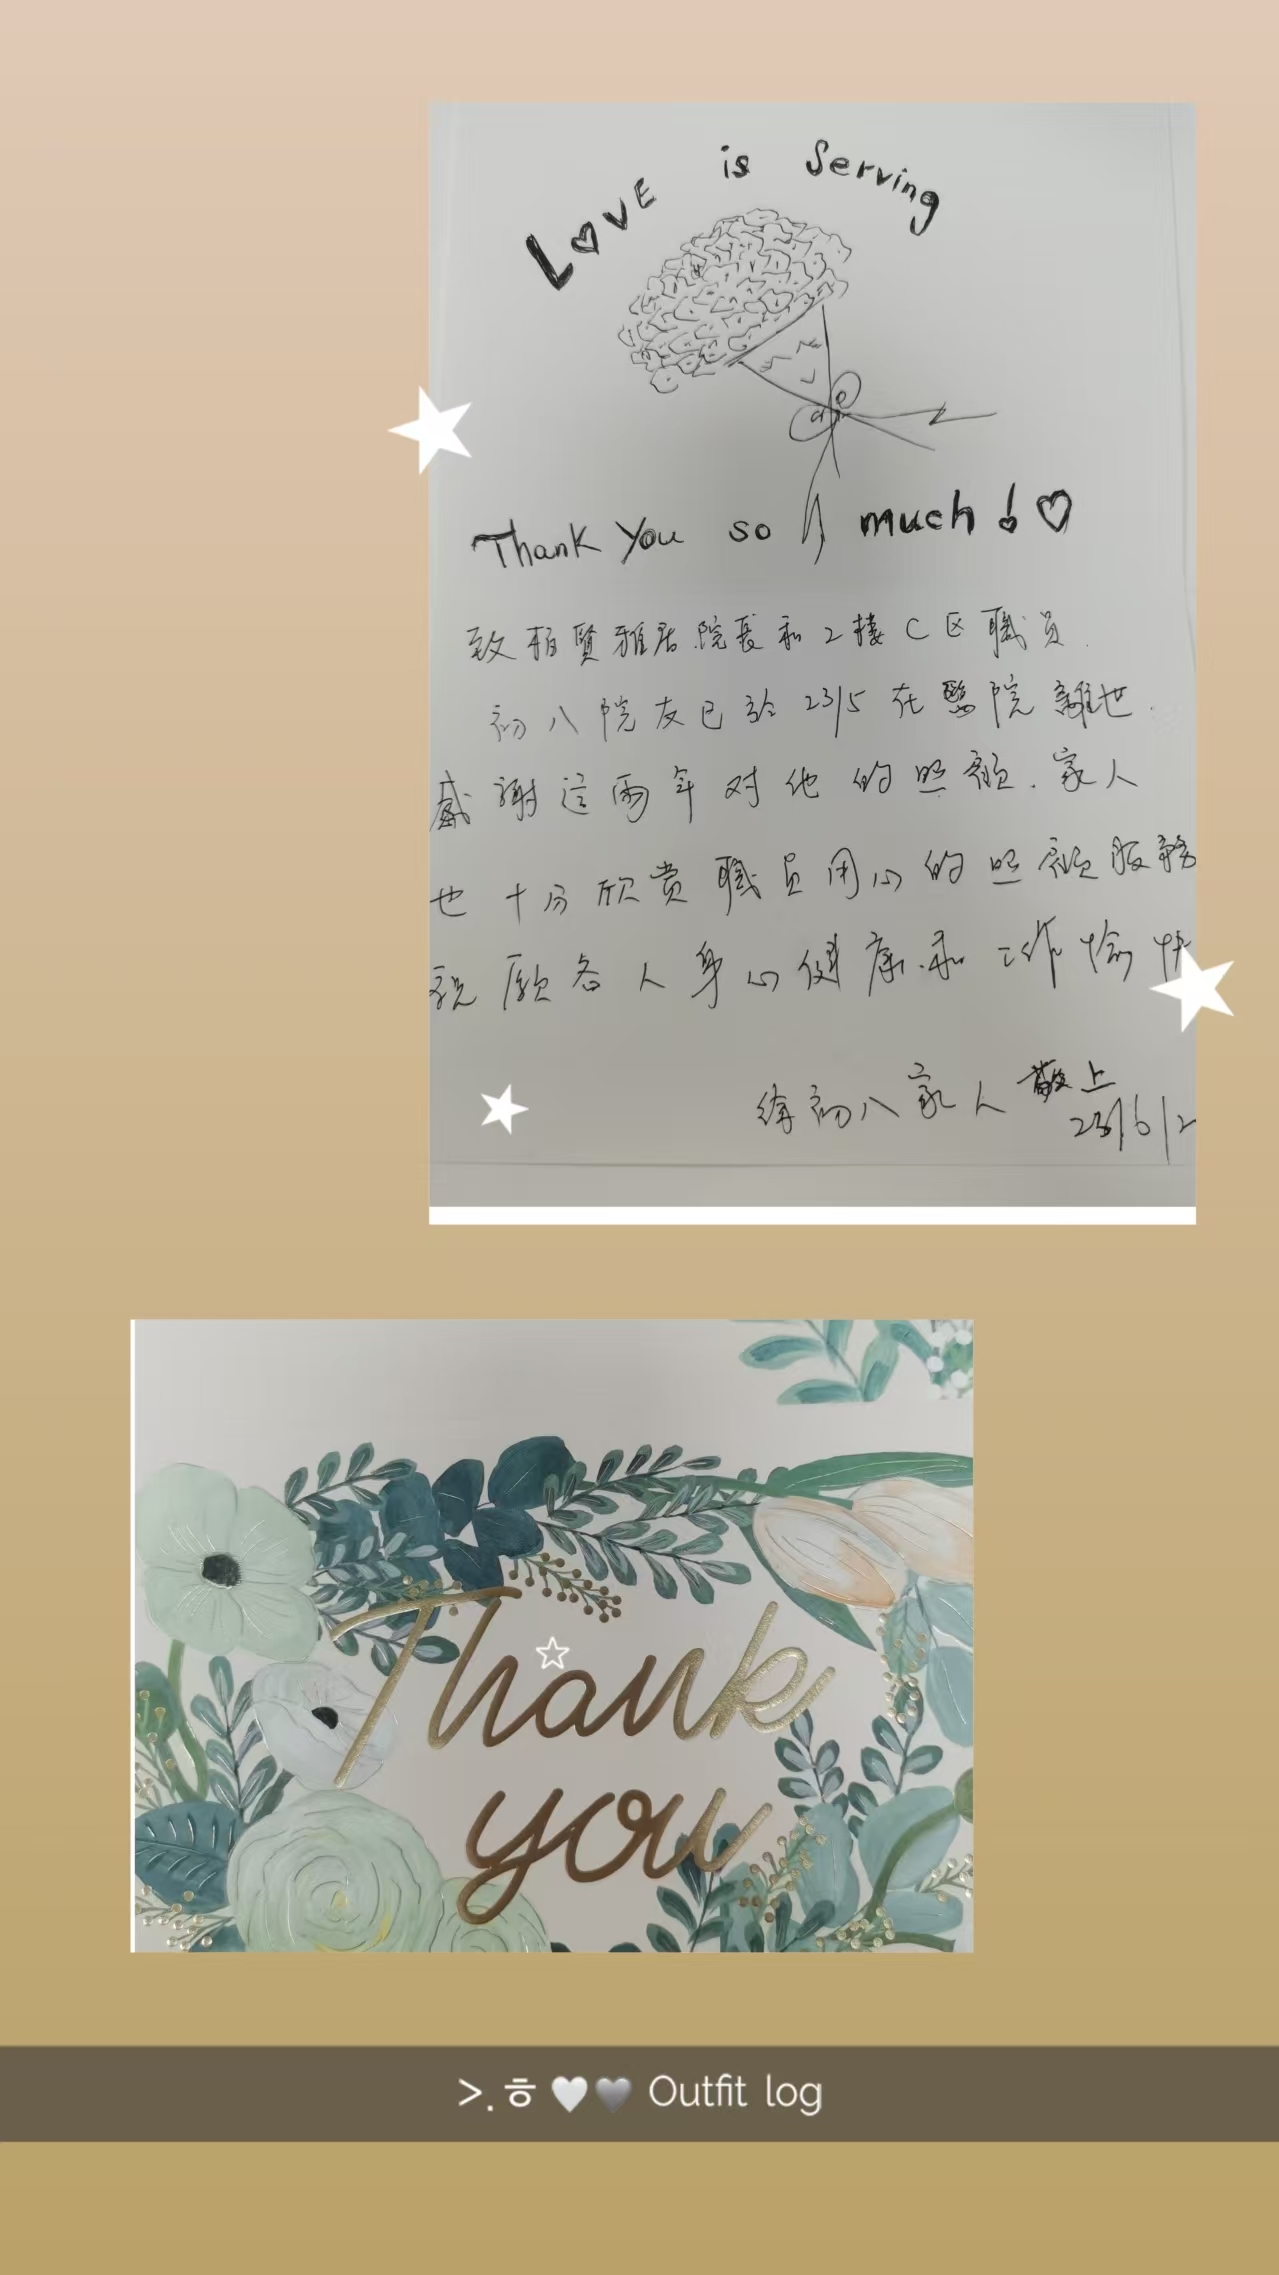 Love is Serving
Thank You so much!♡
致柏賢雅居院長和2樓C区職員.
初八院友已於23/5在醫院離世.
感謝這兩年对他的照顧.家人
也十分欣賞職員用心的照顧服務
祝願各人身心健康.和工作愉快
初八家人 敬上
23/6/2
Thank
you
>.ㅎ🤍🩶 Outfit log